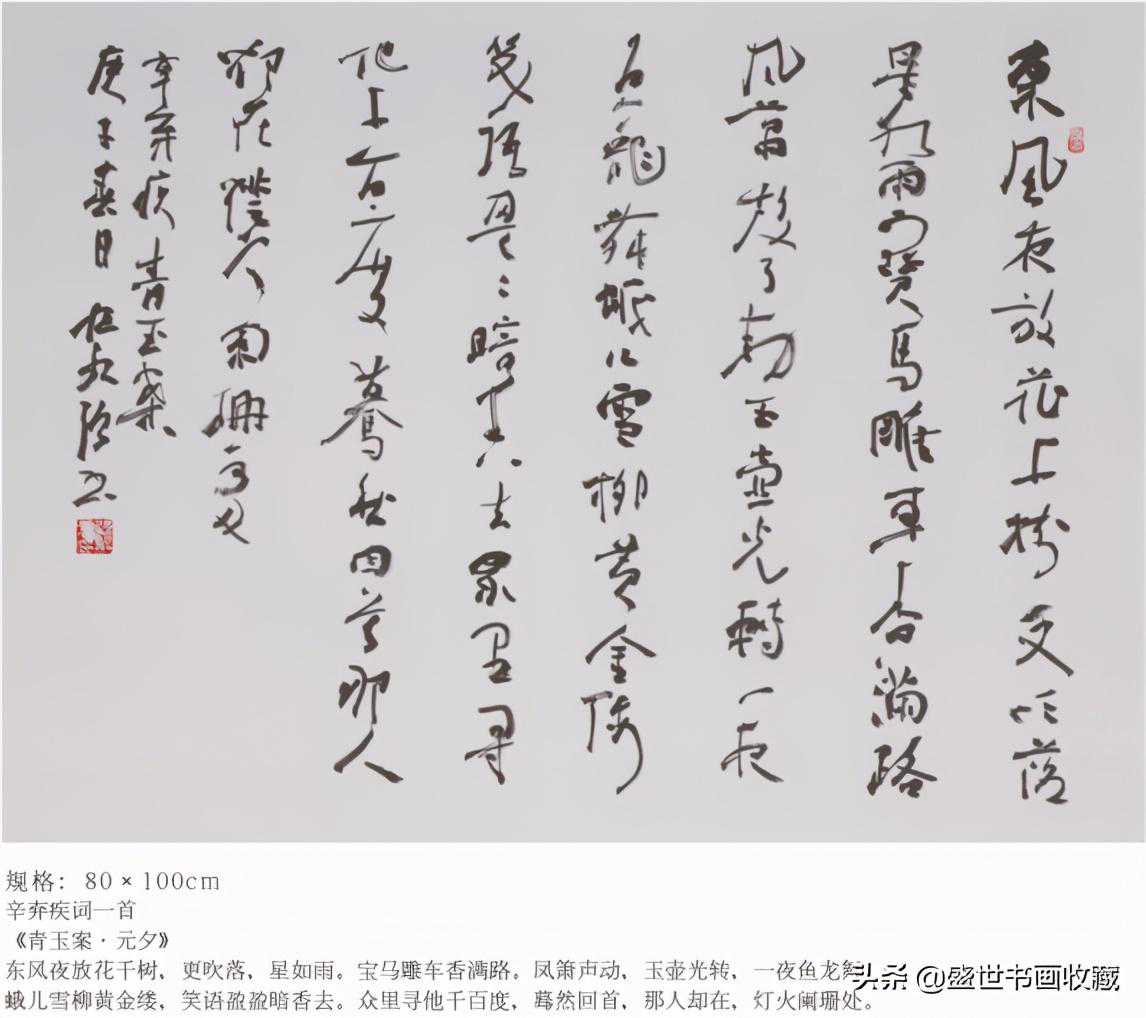 東風夜放花千樹更吹落
星如雨寶馬雕車香滿路
鳳簫聲動玉壺光轉一夜
魚龍舞蛾兒雪柳黃金縷
笑語盈〻暗香去眾里尋
他千百度驀然回首那人
卻在燈火闌珊處
辛棄疾青玉案
庚子春日
规格：80×100cm
辛弃疾词一首
《青玉案·元夕》
东风夜放花千树，更吹落，星如雨。宝马雕车香满路。凤箫声动，玉壶光转，一夜鱼龙舞
蛾儿雪柳黄金缕，笑语盈盈暗香去。众里寻他千百度，蓦然回首，那人却在，灯火阑珊处。
头条 @盛世书画收藏